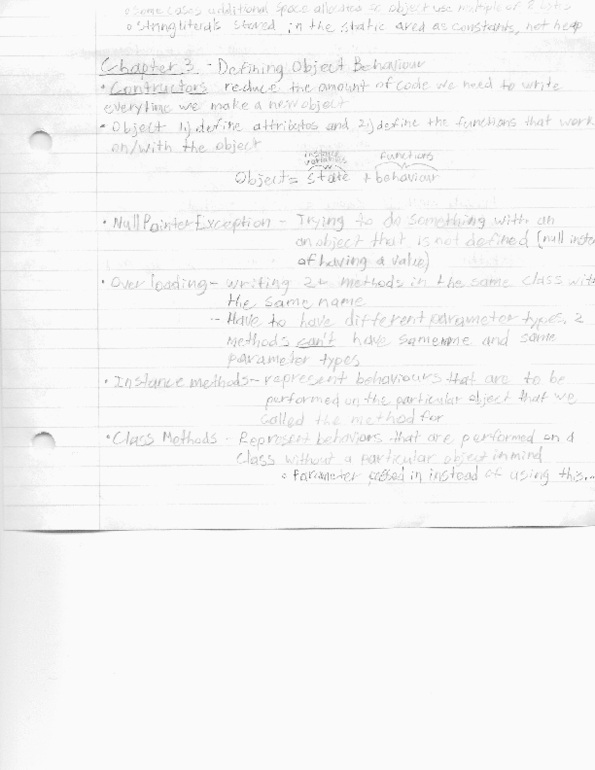 some cases additional space allocated so object use multiple of 8 bytes
String literals stored in the static area as constants, not heap
Chapter 3 - Defining Object Behaviour
• Contructors reduce the amount of code we need to write
everytime we make a new object
• Object 1) define attributes and 2) define the functions that work
on/with the object
instance variables functions
Object = state + behaviour
• NullPointerException - Trying to do something with an
an object that is not defined (null inste
of having a value)
• Overloading - writing 2+ methods in the same class with
the same name
- Have to have different parameter types, 2
methods can't have same name and same
parameter types
• Instance methods - represent behaviours that are to be
performed on the particular object that we
called the method for
• Class Methods - Represent behaviors that are performed on a
class without a particular object in mind
• Parameter passed in instead of using this...